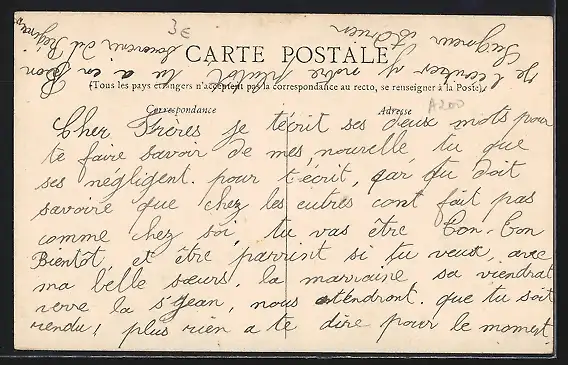 3€
CARTE POSTALE
(Tous les pays étrangers n'acceptent pas la correspondance au recto, se renseigner à la Poste).
Correspondance
Adresse
A200
Cher Frères je técrit ses deux mots pour
te faire savoir de mes nouvelle, tu que
ses négligent. pour t'écrit, çar tu doit
savoire que chez les eutres cont fait pas
comme chez sôi, tu vas être Ton-Ton
Bientôt et être parrint si tu veux avec
ma b'elle sœurs, la marraine sa viendrat
verre la s'Jean, nous atendront. que tu soit
rendu! plus rien a te dire pour le moment